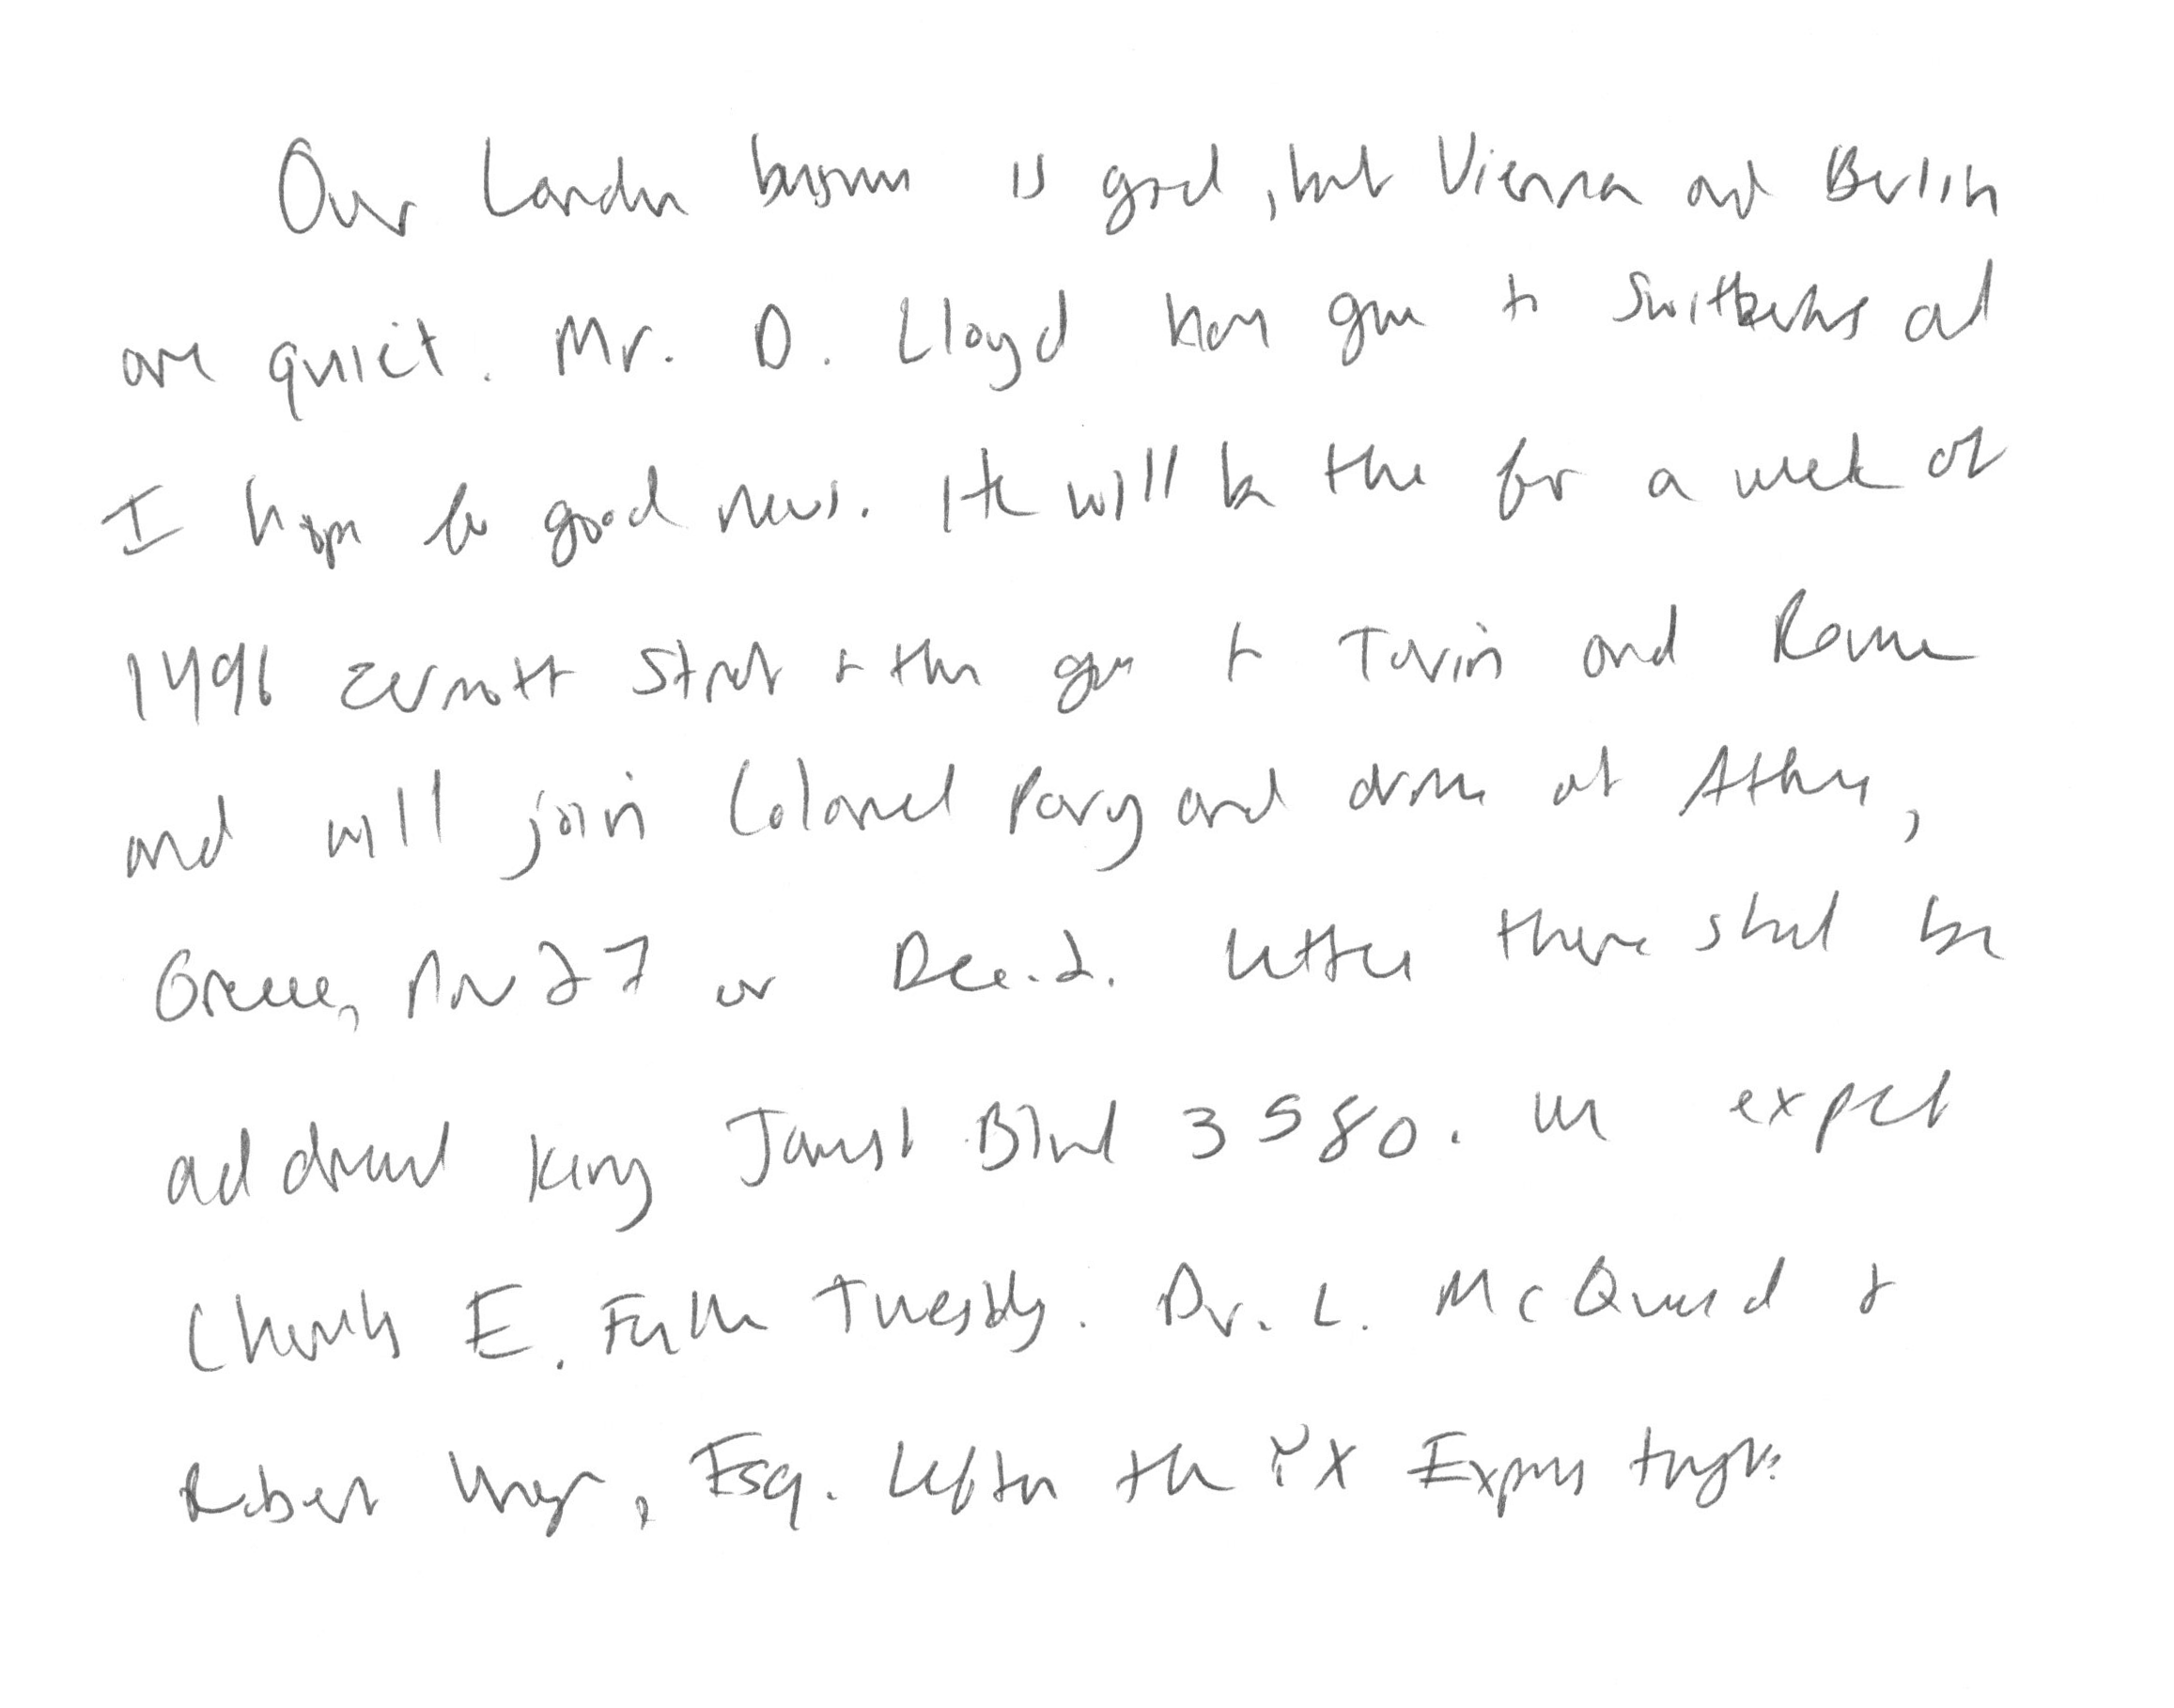 Our London business is good, but Vienna and Berlin
are quiet. Mr. D. Lloyd has gone to Switzerland and
I hope for good news. He will be there for a week at
1496 Zermott Street & then goes to Turin and Rome
and will join Colonel Parry and arrive at Athens,
Greece, Nov 27 or Dec. 2. Letters there should be
addressed King James Blvd 3580. We expect
Charles E. Fuller Tuesday. Dr. L. McQuaid &
Robert Unger, Esq. left on the YX Express tonight.